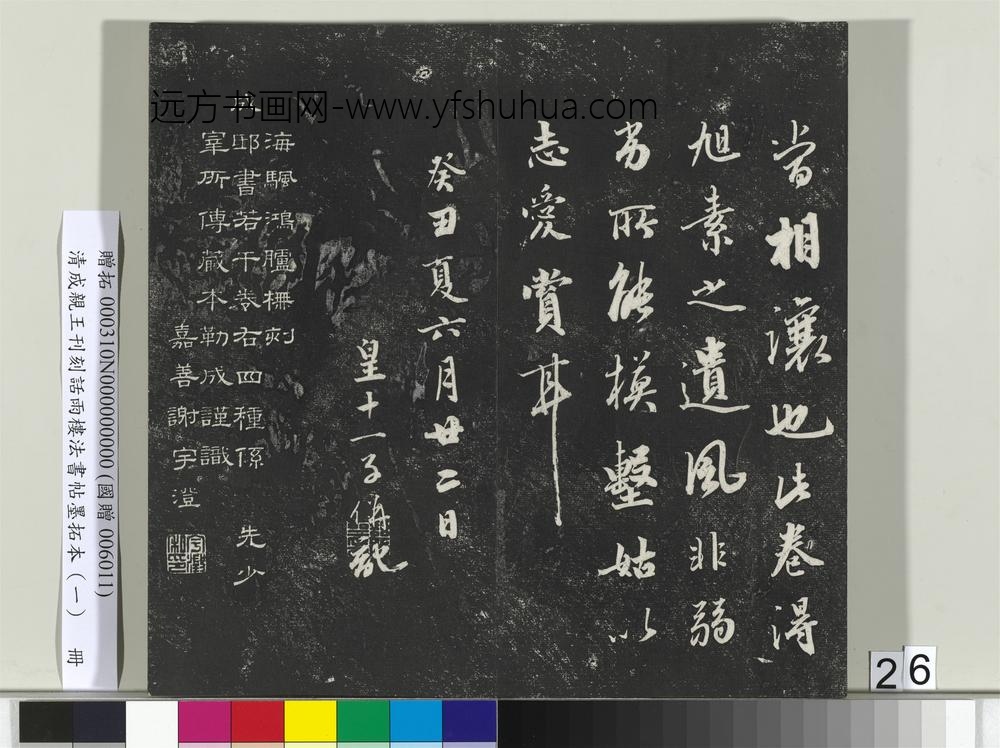 嘗相讓也此卷得
旭素之遺風非弱
劣所能摸擊姑以
志愛賞耳
癸丑夏六月廿二日
皇十一子偁記
海颿鴻臚橅刻
邸書若干卷右四種係 先少
宰所傳藏本勒成謹識
嘉善謝宇澄
远方书画网-www.yfshuhua.com
贈拓 000310N000000000(國贈 006011)
清成親王刊刻話雨樓法書帖墨拓本(一) 冊
26